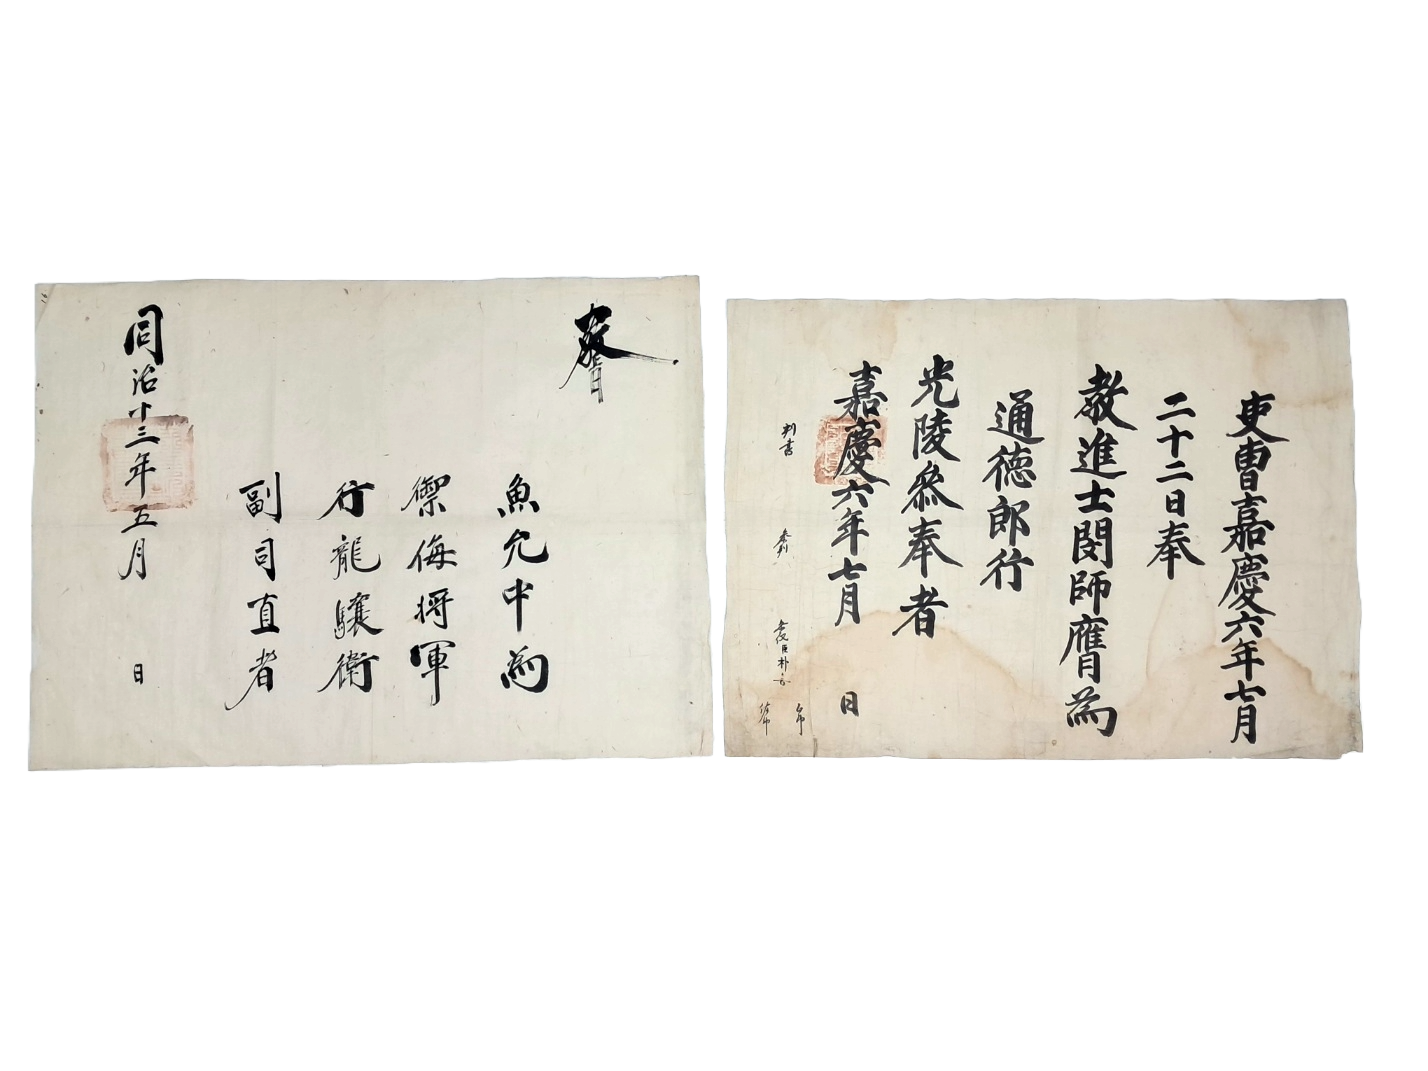 敎旨
魚允中爲
禦侮將軍
行龍驤衛
副司直者
同治十三年五月 日
吏曹嘉慶六年七月
二十二日奉
敎進士閔師膺爲
通德郎行
光陵參奉者
嘉慶六年七月 日
判書
參判